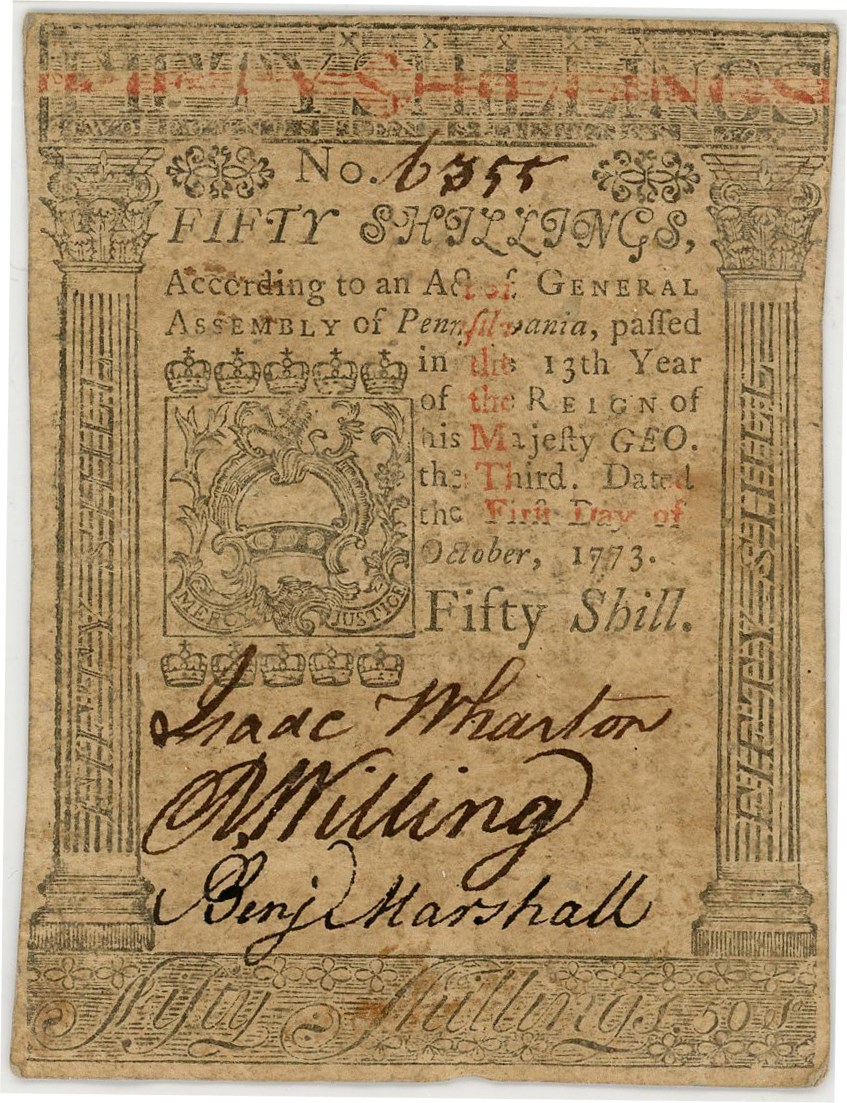 FIFTY SHILLINGS
No. 6355
FIFTY SHILLINGS,
According to an Act of GENERAL
ASSEMBLY of Pennſilvania, paſſed
in the 13th Year
of the REIGN of
his Majeſty GEO.
the Third. Dated
the Firſt Day of
October, 1773.
Fifty Shill.
MERCY JUSTICE
Isaac Wharton
R. Willing
Benj Marshall
FIFTY SHILL
FIFTY SHILL
Fifty Shillings. 50 s